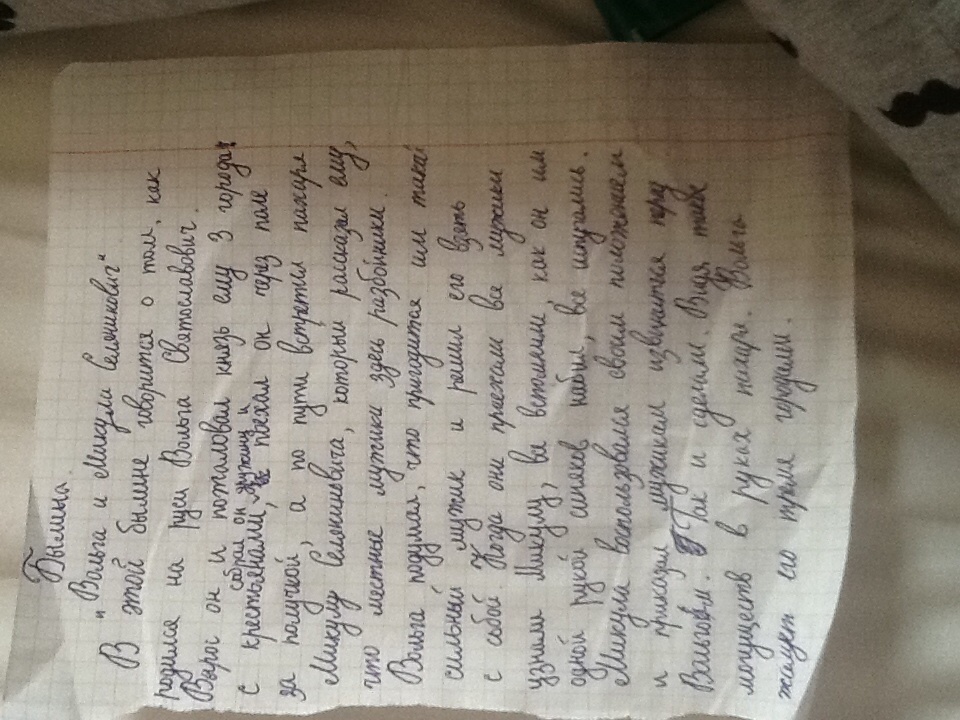 Былина.
„Вольга и Микула Селянинович“
В этой былине говорится о том, как
родился на Руси Вольга Святославович.
Вырос он и пожаловал князь ему 3 города
с крестьянами, собрал он дружину и поехал он через поле
за получкой, а по пути встретил пахаря
Микулу Селяниновича, который рассказал ему,
что местные мужики здесь разбойники.
Вольга подумал, что пригодится им такой
сильный мужик и решил его взять
с собой. Когда они приехали все мужики
узнали Микулу, вы вспомнили, как он им
одной рукой синяков набил, все испугались.
Микула воспользовался своим положением
и приказал мужикам извиниться перед
Вольгой. Так и сделали. Видя такое
могущество в руках пахаря. Вольга
жалует его тремя городами.